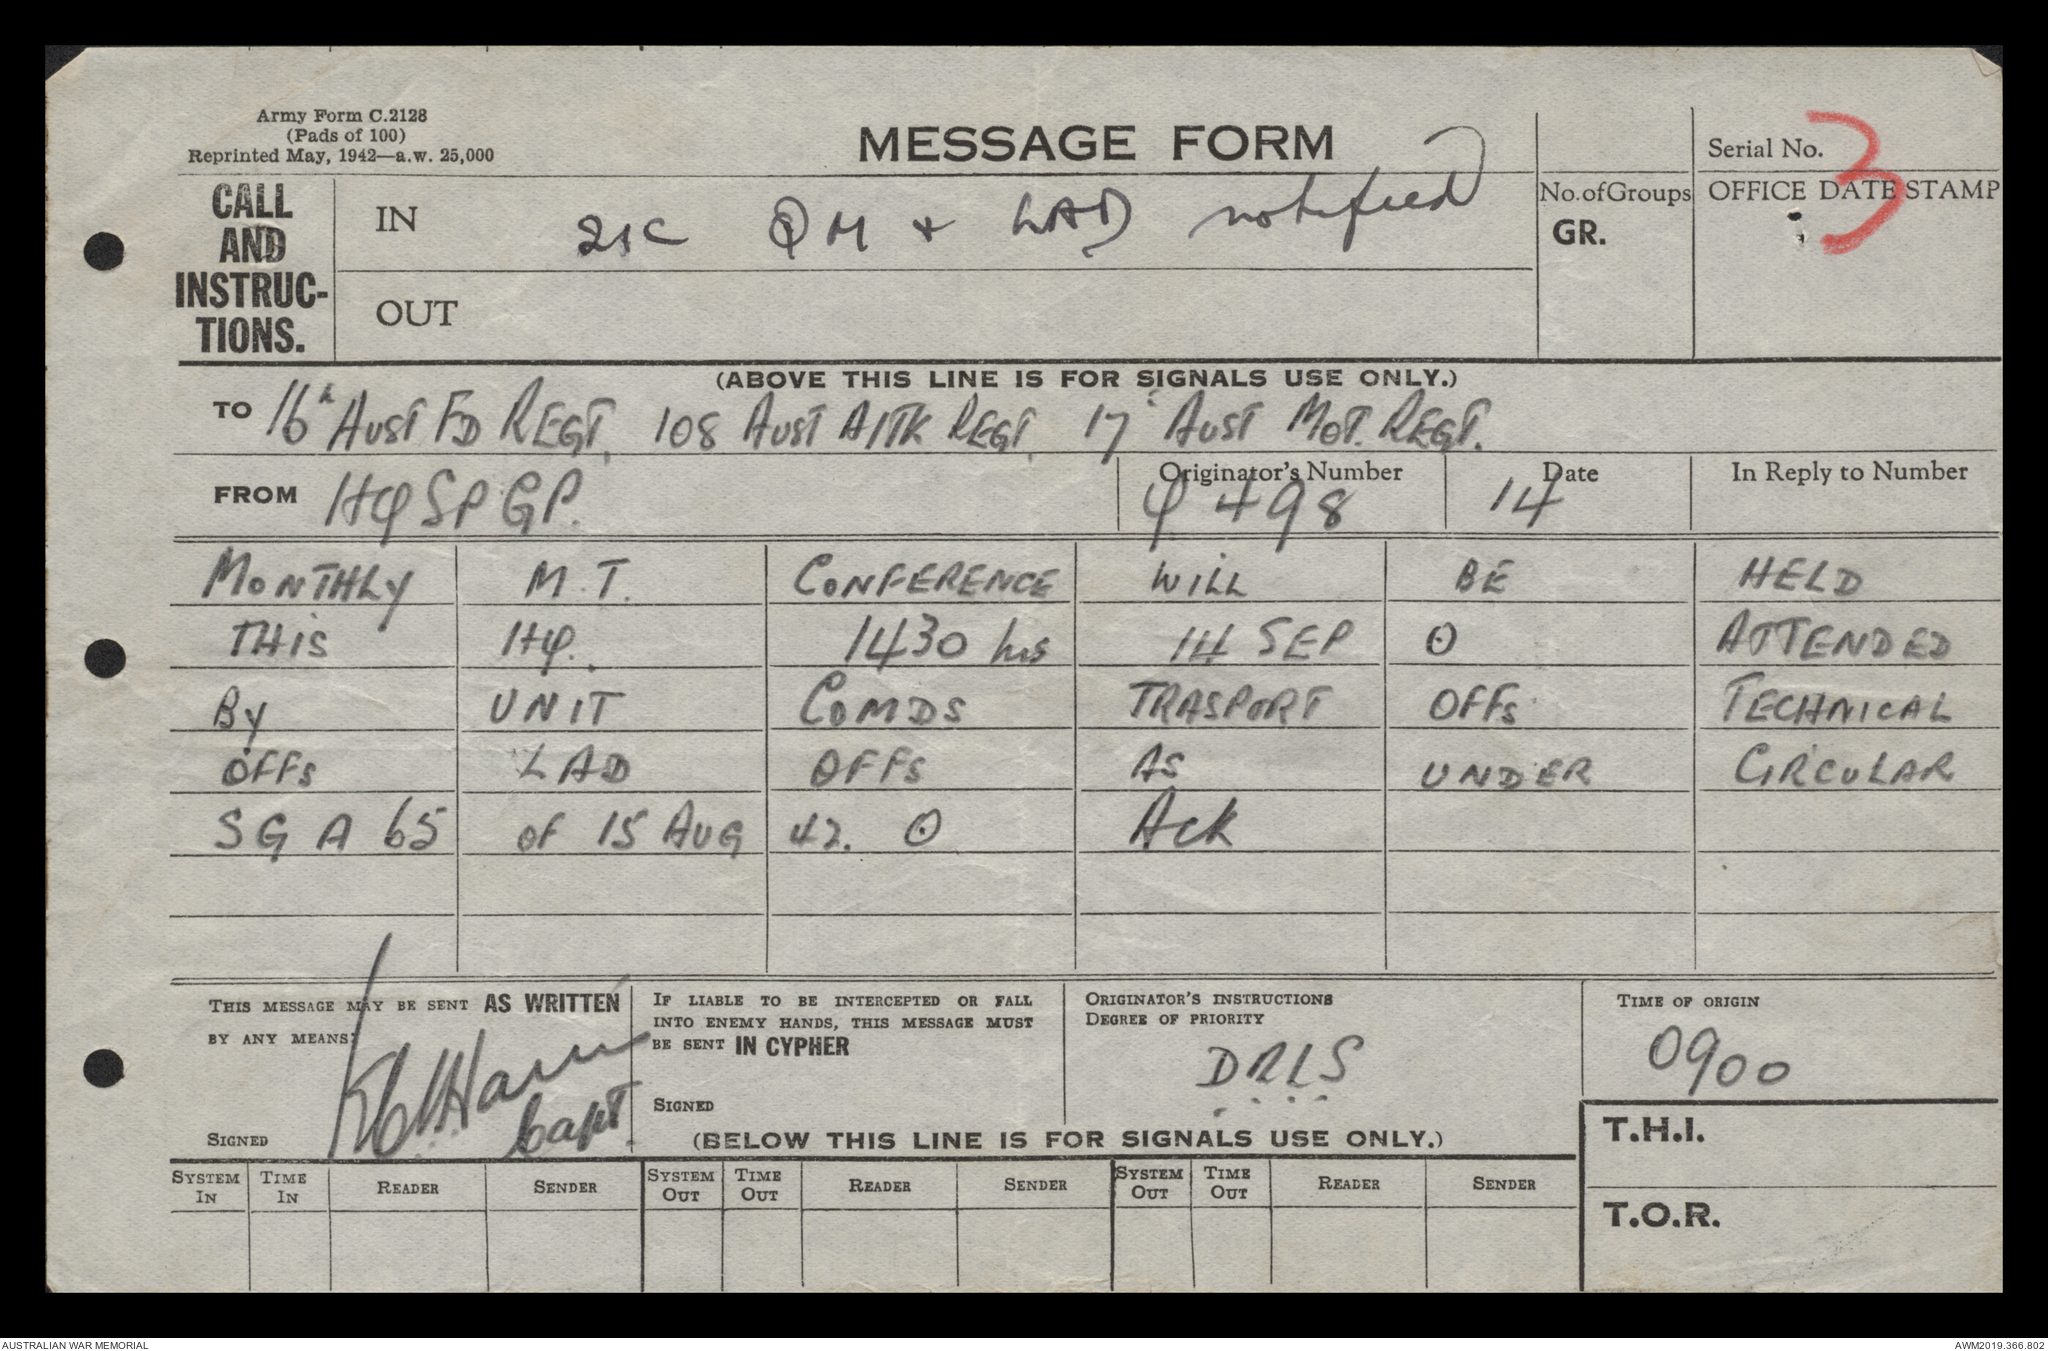 Army Form C.2128
(Pads of 100)
Reprinted May, 1942—a.w. 25,000
MESSAGE FORM
Serial No. 3
CALL
AND
INSTRUC-
TIONS.
IN 2IC QM + LAD notified
OUT
No. of Groups
GR.
OFFICE DATE STAMP
(ABOVE THIS LINE IS FOR SIGNALS USE ONLY.)
TO 16th AUST FD REGT, 108 AUST A/TK REGT, 17 AUST MOT. REGT.
FROM HQ SP GP.
Originator's Number Q 498
Date 14
In Reply to Number
MONTHLY M.T. CONFERENCE WILL BE HELD
THIS HQ. 1430 hrs 14 SEP ʘ ATTENDED
BY UNIT COMDS TRASPORT OFFS TECHNICAL
OFFS LAD OFFS AS UNDER CIRCULAR
SG A 65 OF 15 AUG 42. ʘ Ack
THIS MESSAGE MAY BE SENT AS WRITTEN
BY ANY MEANS:
SIGNED Capt.
IF LIABLE TO BE INTERCEPTED OR FALL
INTO ENEMY HANDS, THIS MESSAGE MUST
BE SENT IN CYPHER
SIGNED
ORIGINATOR'S INSTRUCTIONS
DEGREE OF PRIORITY
DRLS
TIME OF ORIGIN
0900
(BELOW THIS LINE IS FOR SIGNALS USE ONLY.)
T.H.I.
T.O.R.
SYSTEM IN TIME IN READER SENDER SYSTEM OUT TIME OUT READER SENDER SYSTEM OUT TIME OUT READER SENDER
AUSTRALIAN WAR MEMORIAL
AWM2019.366.802